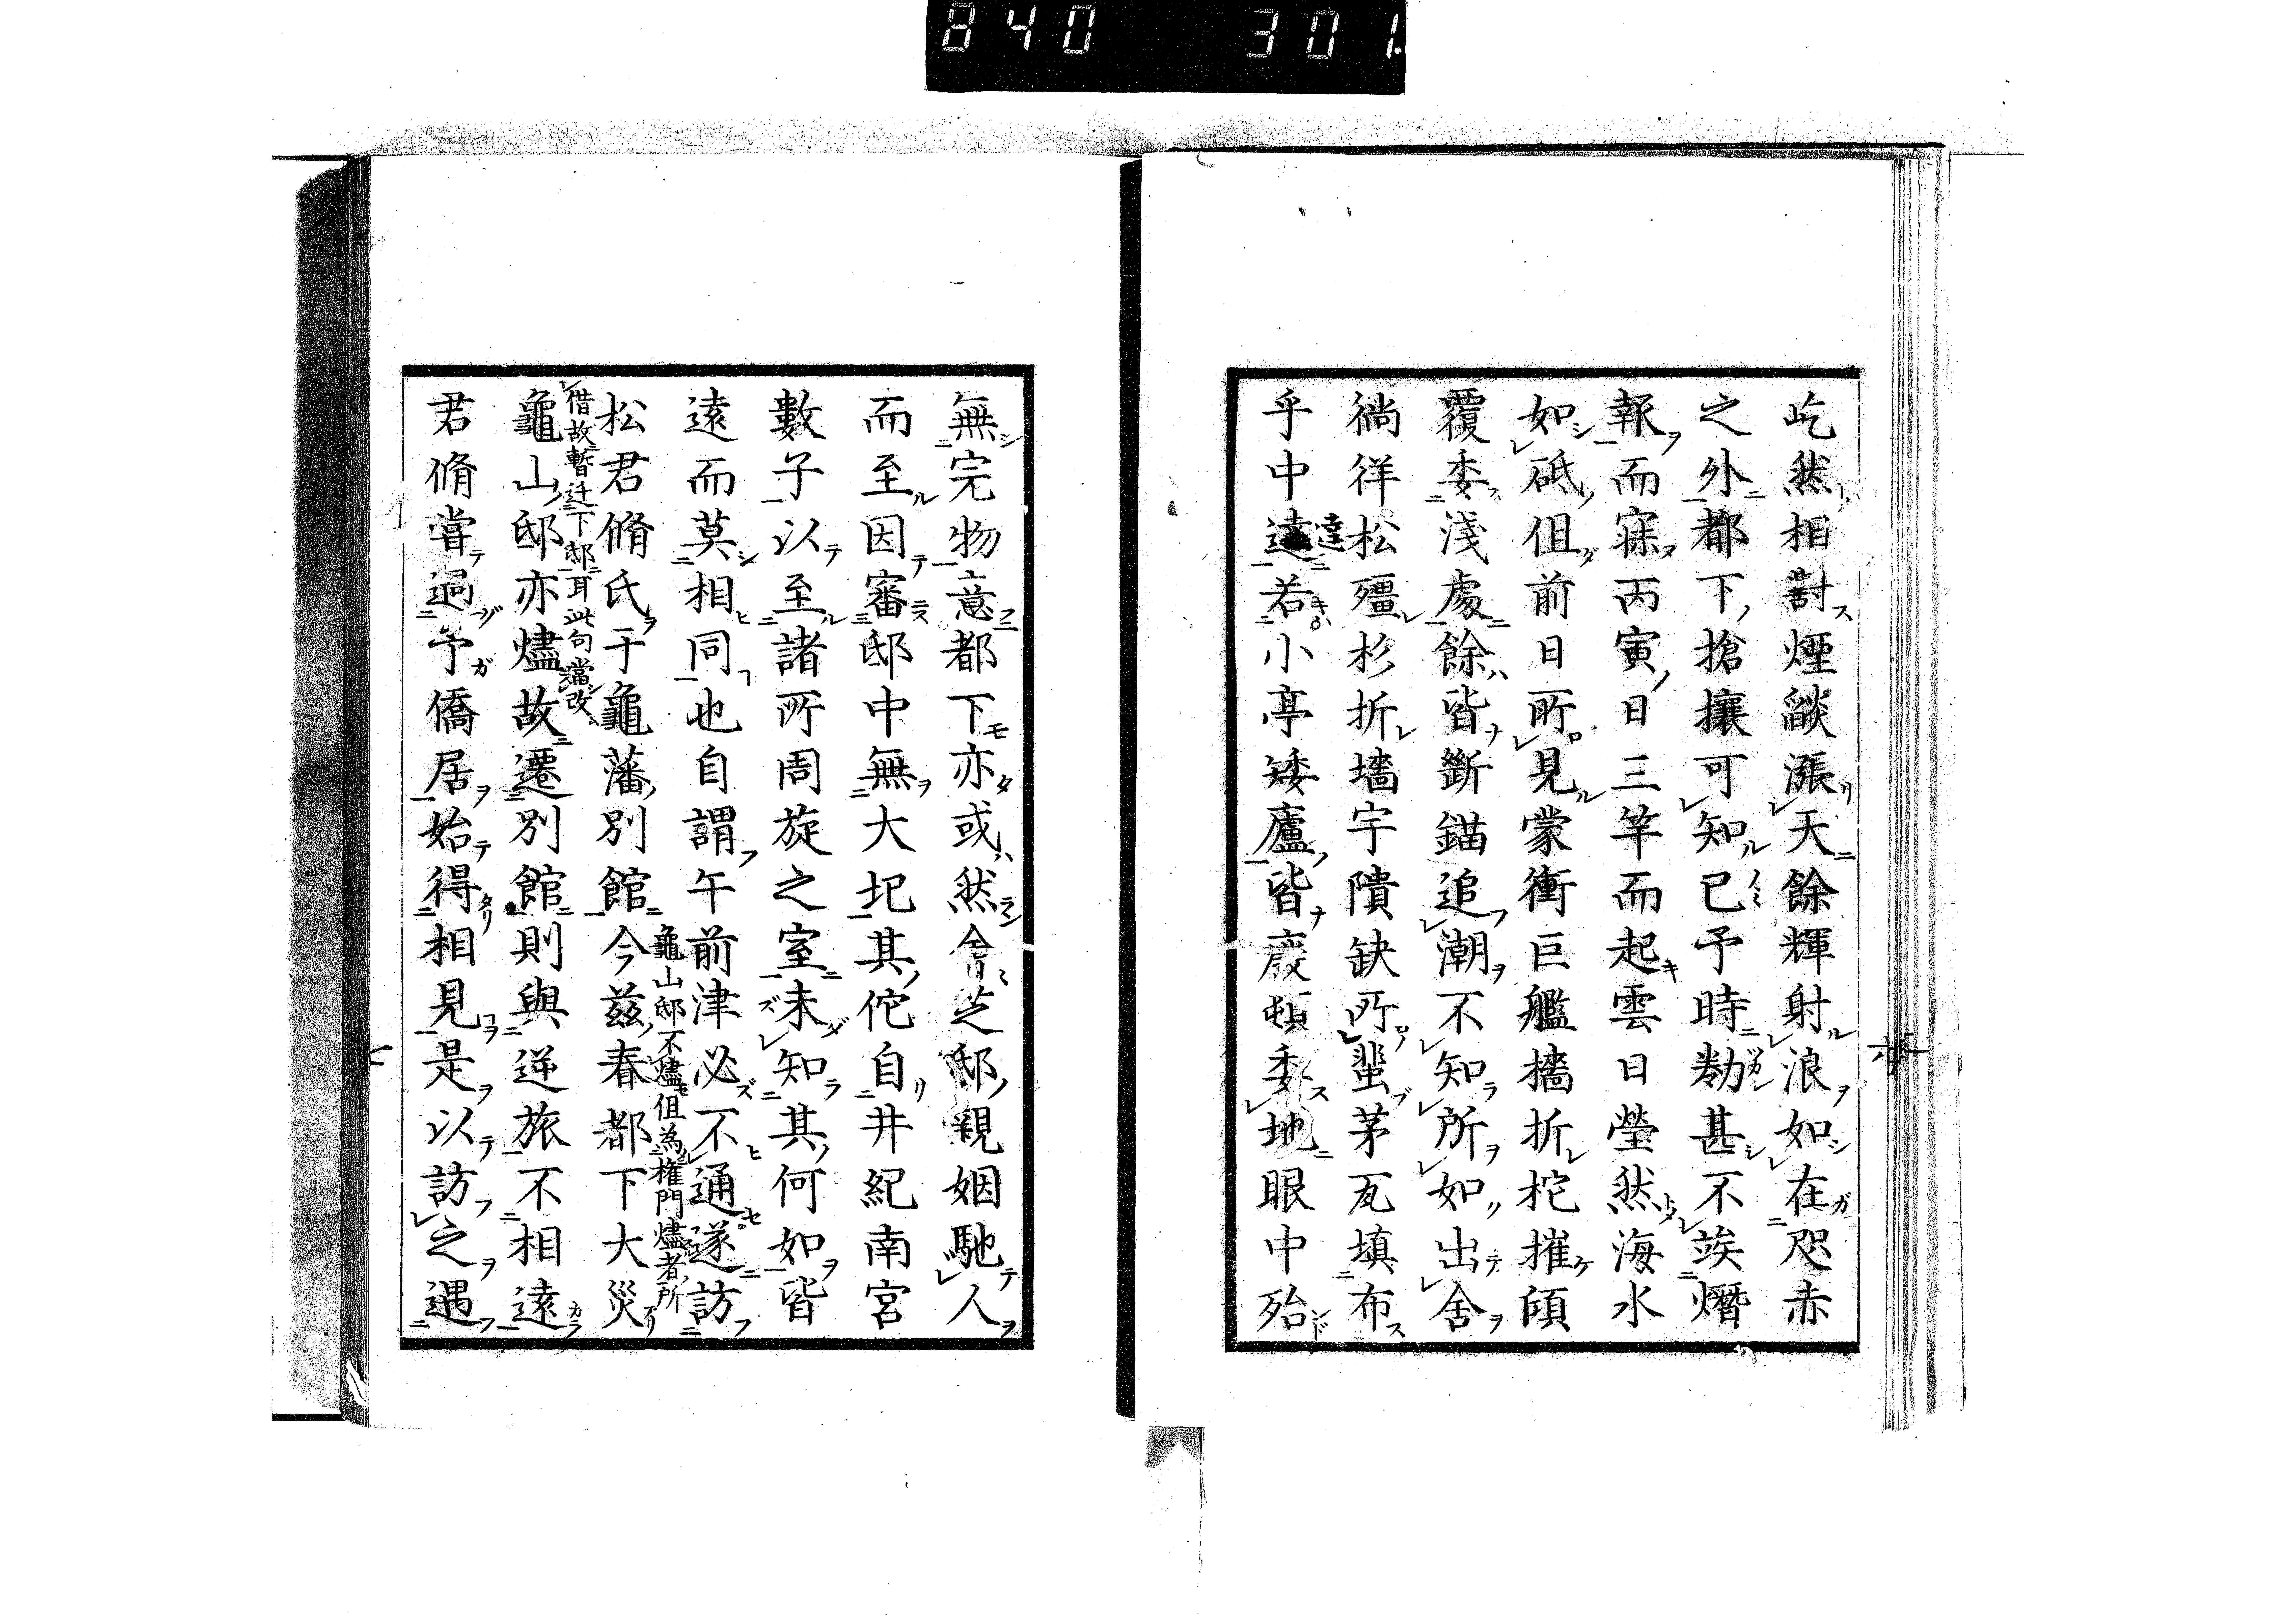 840 301
屹然相對煙燄漲天餘輝射浪如在咫赤
之外都下搶攘可知已予時勌甚不竢熸
報而寐丙寅日三竿而起雲日瑩然海水
如砥但前日所見蒙衝巨艦檣折柁摧傾
覆委淺處餘皆斷錨追潮不知所如出舍
徜徉松殭杉折墻宇隤缺所蜚茅瓦填布
乎中逵若小亭矮廬皆廢頓委地眼中殆
逵
無完物意都下亦或然會芝邸親姻馳人
而至因審邸中無大圮其佗自井紀南宮
數子以至諸所周旋之室未知其何如皆
遠而莫相同也自謂午前津必不通遂訪
龜山邸不燼但為権門燼者所
松君脩氏于龜藩別館今茲春都下大災
借故暫迁下邸耳此句當改
龜山邸亦燼故遷別館則與逆旅不相遠
君脩嘗過予僑居始得相見是以訪之遇